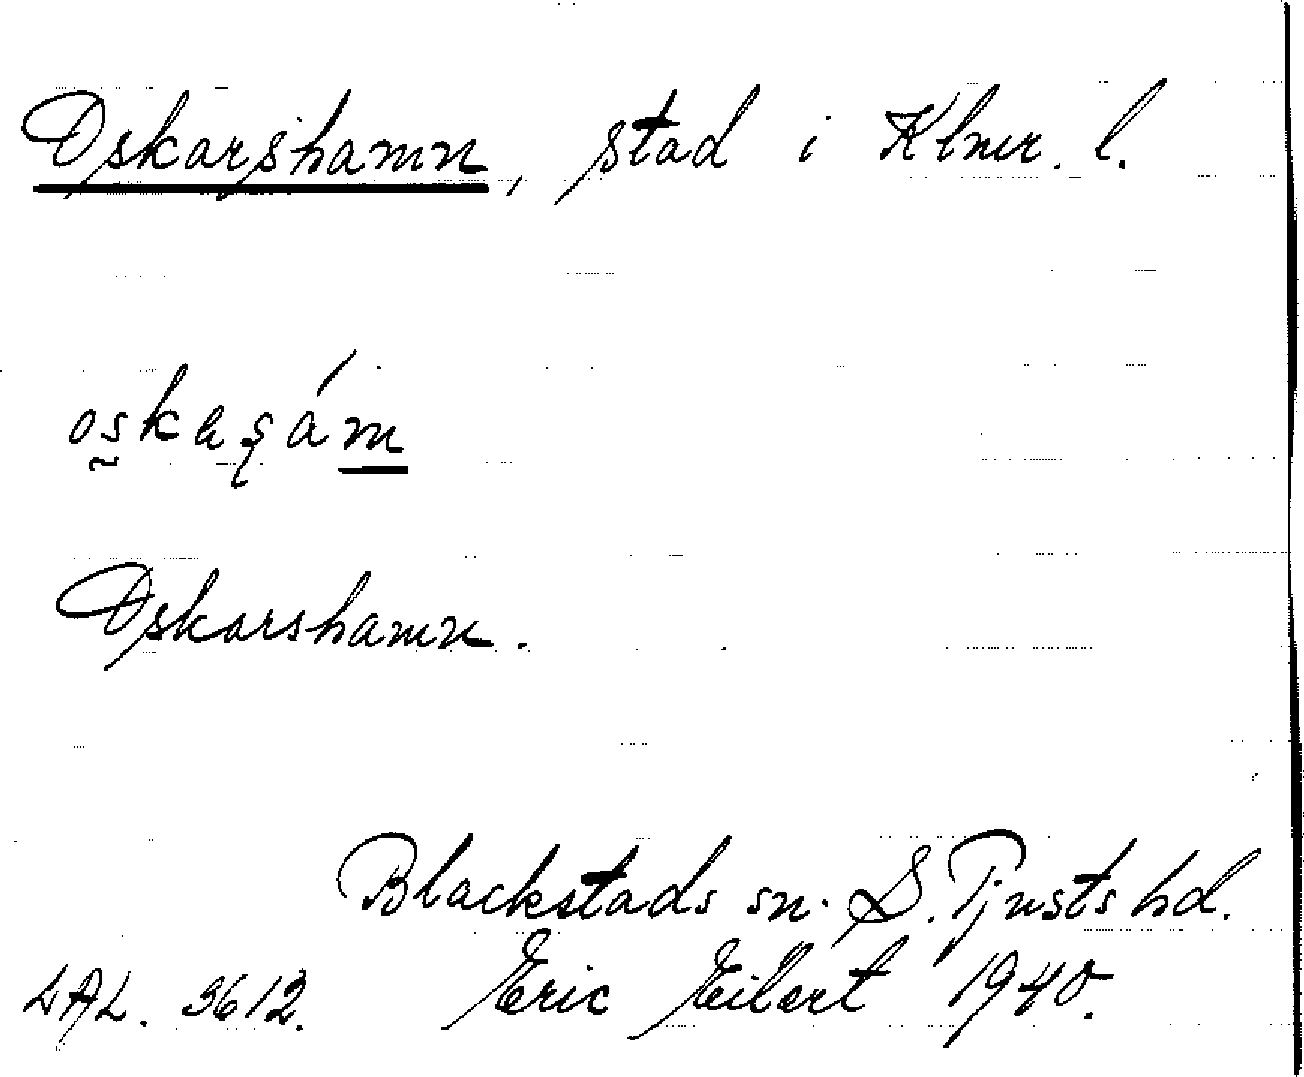 Oskarshamn, stad i Klmr. l.
oskaʂám
Oskarshamn.
Blackstads sn. S. Tjusts hd.
LAL. 3612. Eric Eilert 1940.